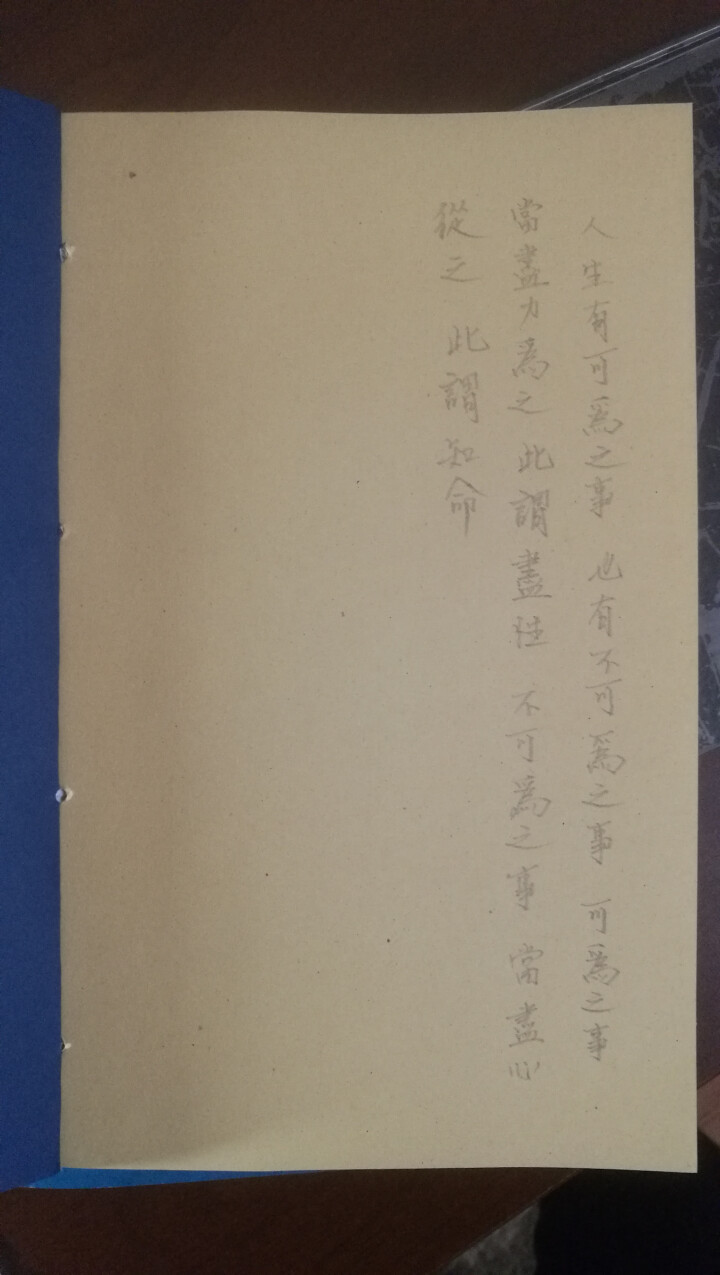 人生有可爲之事 也有不可爲之事 可爲之事
當盡力爲之 此謂盡性 不可爲之事 當盡心
從之 此謂知命